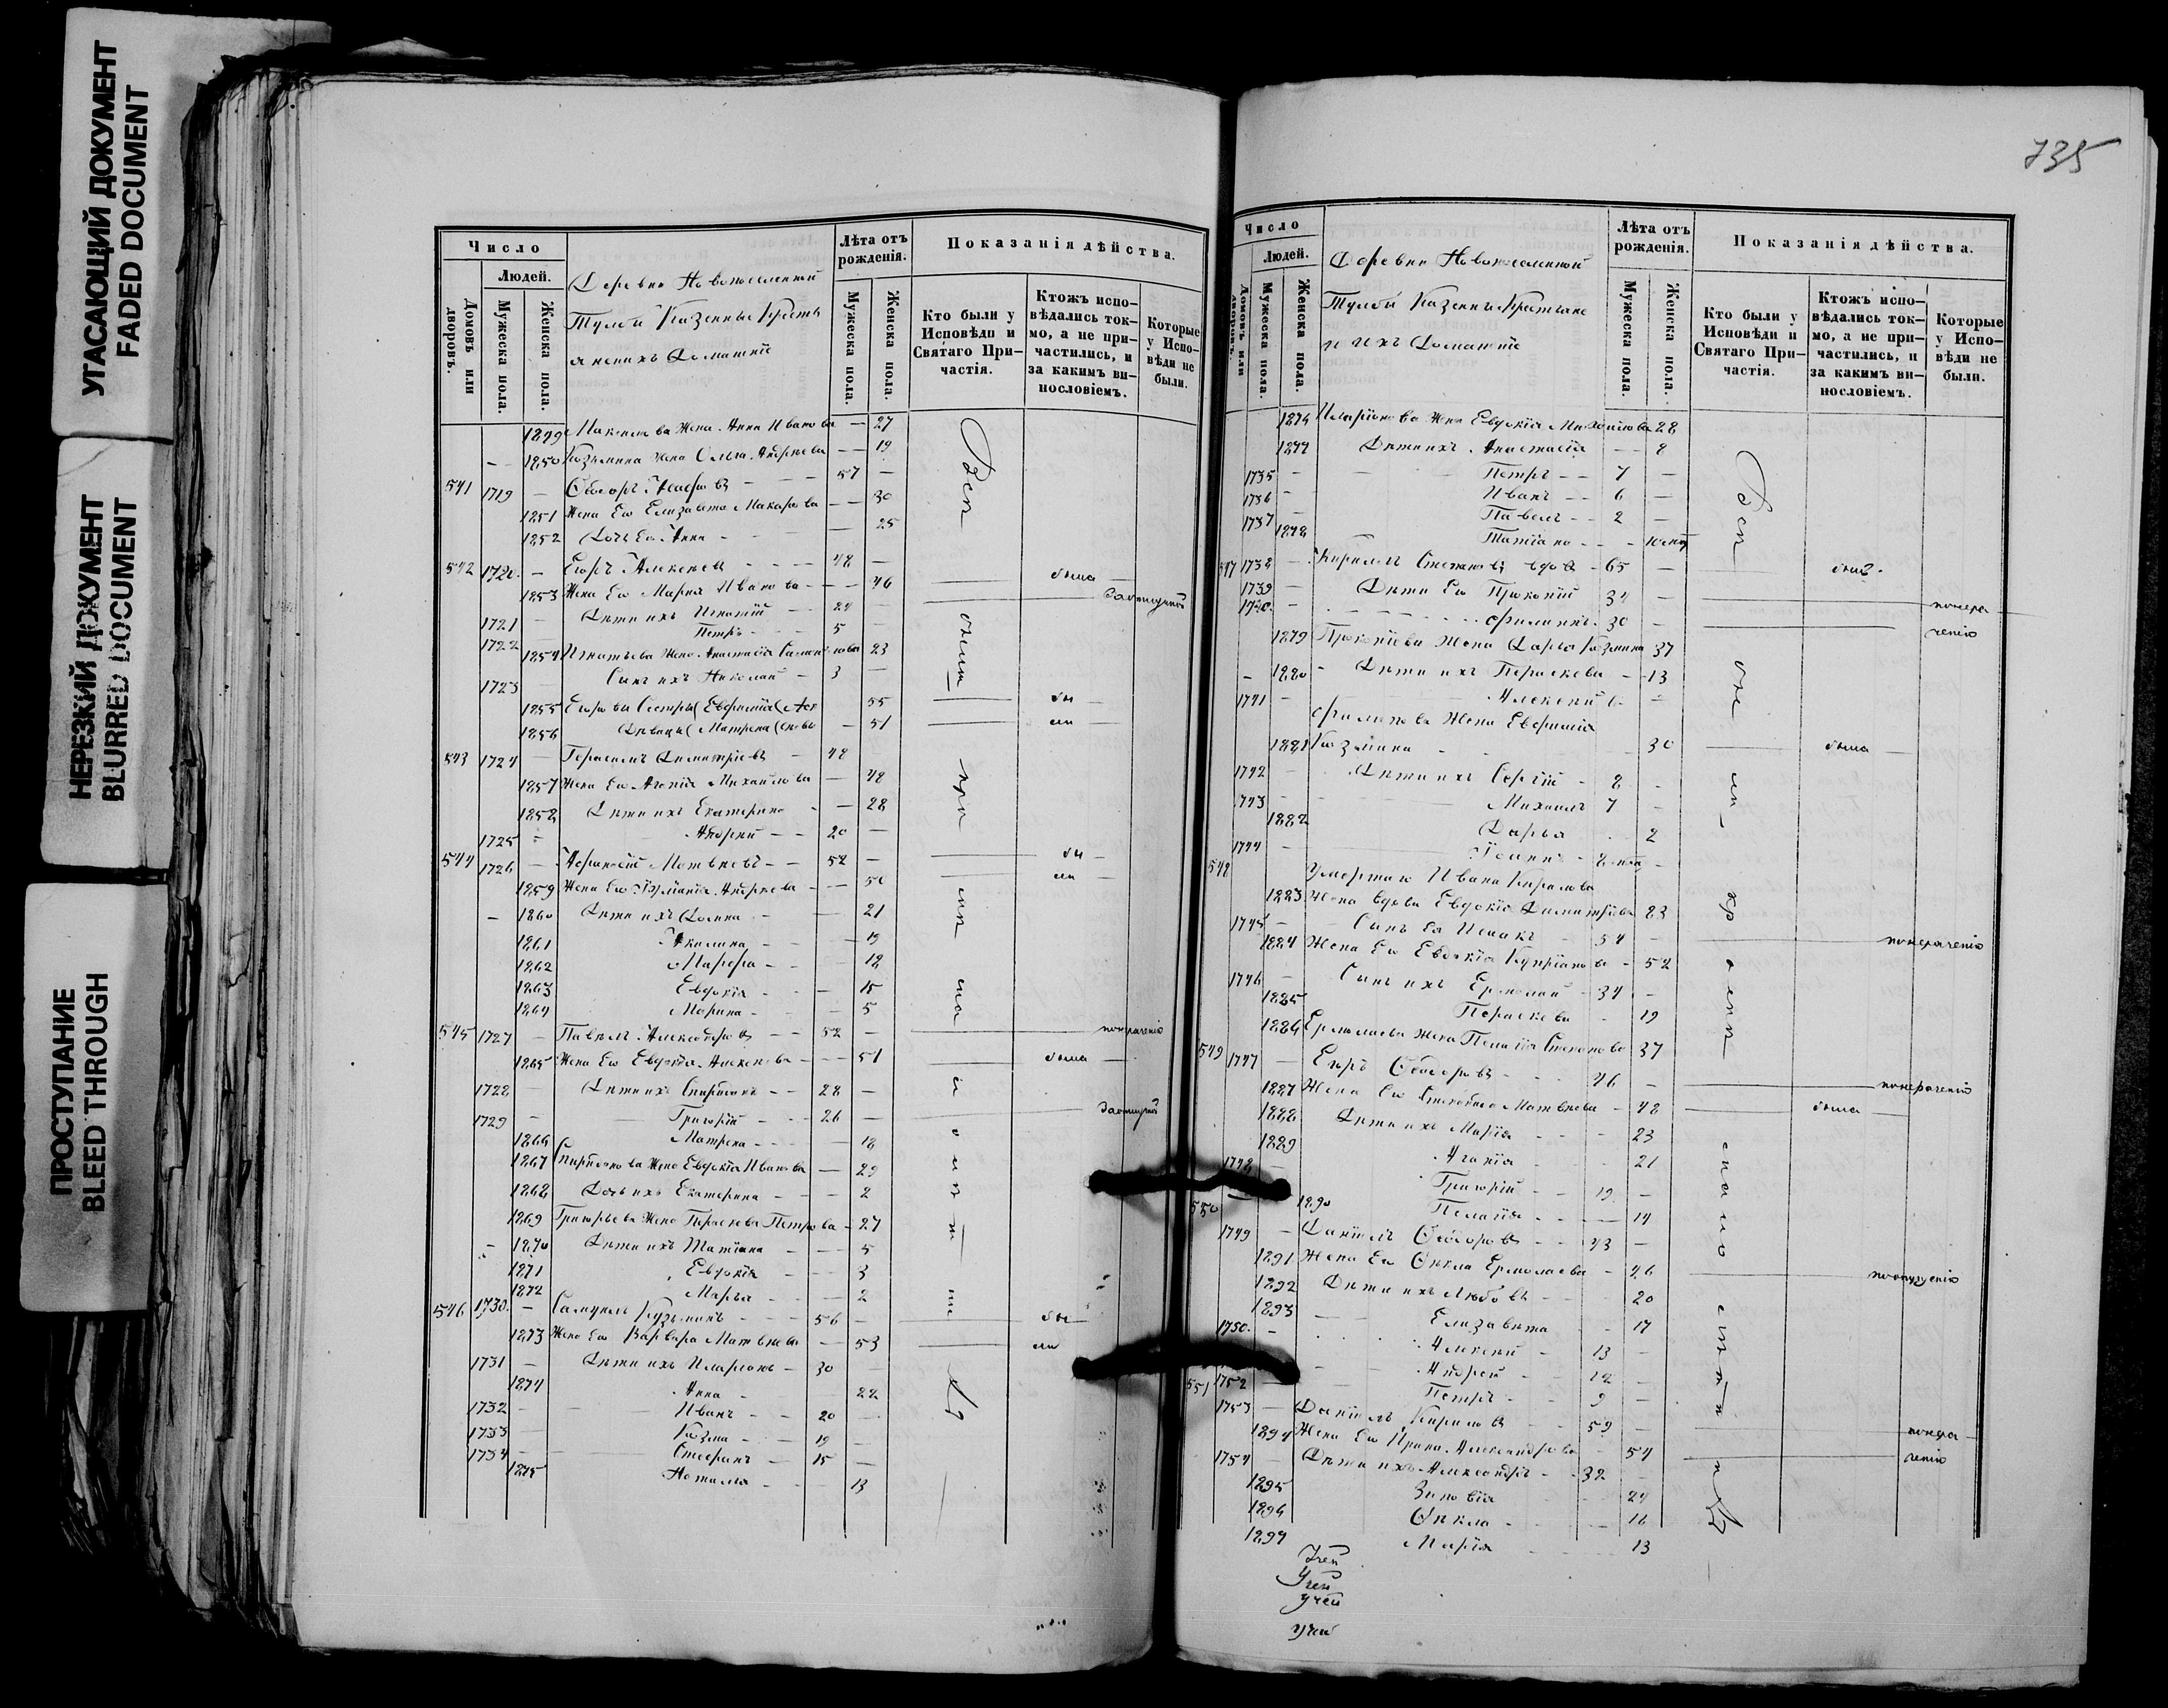 УГАСАЮЩИЙ ДОКУМЕНТ
FADED DOCUMENT
НЕРЕЗКИЙ ДОКУМЕНТ
BLURRED DOCUMENT
ПРОСТУПАНИЕ
BLEED THROUGH
Число
Людей.
Домовъ или дворовъ.
Мужеска пола.
Женска пола.
Деревни Новопоселенной
Казенные
Домашніе
Лѣта отъ рожденія.
Мужеска пола.
Женска пола.
Показанія дѣйства.
Кто были у Исповѣди и Святаго Причастія.
Ктожъ исповѣдались токмо, а не причастились, и за какимъ винословіемъ.
Которые у Исповѣди не были.
1849 Жена Анна Иванова — 27
1850 Козьмина жена Ольга Андреева — 19
541 1719 — Ѳеодоръ 57 —
1851 Жена Его Елизавета Макарова — 30
1852 Дочь Его Анна — 25
542 1720 — Егоръ Алексеевъ 48 —
1853 Жена Его Марія Иванова — 46 была
1721 — Дѣти ихъ Игнатій 24 —
1722 Петръ 5 —
1854 Игнатьева Жена Анастасія 23
1723 Сынъ ихъ Николай 3 —
1855 Егорова Сестры Евфимія 55 бы
1856 Дѣвицы Матрена — 51 ли
543 1724 — Герасимъ Димитріевъ 48
1857 Жена Его Агапія Михайлова — 48
1858 Дѣти ихъ Екатерина — 28
1725 Андрей 20 —
544 1726 — Афанасій Матвеевъ 52 — бы
1859 Жена Его Андреева — 50 ли
1860 Дѣти ихъ Домна — 21
1861 Акилина — 19
1862 Марфа — 18
1863 Евдокія — 15
1864 Марина — 5
545 1727 — Павелъ Александровъ 52 — понераченію
1865 Жена Его Евдокія Алексеева — 51 была
1728 — Дѣти ихъ Спиридонъ 28 —
1729 — Григорій 26 —
1866 Матрена — 18
1867 Спиридонова Жена Евдокія Иванова — 29
1868 Дочь ихъ Екатерина — 2
1869 Григорьева Жена Параскева Петрова — 27
1870 Дѣти ихъ Татіана — 5
1871 Евдокія — 3
1872 Марѳа — 2
546 1730 — Самуилъ Кузьминъ 56 — бы
1873 Жена Его Варвара Матвеева — 53 ли
1731 — Дѣти ихъ Иларіонъ 30 —
1874 Анна 22
1732 — Иванъ 20 —
1733 — Козма 19 —
1734 — Стефанъ 15 —
1875 Наталья 13
735
Число
Людей.
Домовъ или дворовъ.
Мужеска пола.
Женска пола.
Деревни Новопоселенной
Казенные Крестьяне
и ихъ Домашніе
Лѣта отъ рожденія.
Мужеска пола.
Женска пола.
Показанія дѣйства.
Кто были у Исповѣди и Святаго Причастія.
Ктожъ исповѣдались токмо, а не причастились, и за какимъ винословіемъ.
Которые у Исповѣди не были.
1876 Иларіонова Жена Евдокія Михайлова 28
1877 Дѣти ихъ Анастасія — 8
1735 — Петръ 7 —
1736 — Иванъ 6 —
1737 — Павелъ 2 —
1878 Татіана —
547 1738 — Кирилъ Степановъ вдовъ 65 — былъ
1739 — Дѣти Его Прокопій 34 — понера
1740 — Филиппъ 30 — ченію
1879 Прокопіева Жена Дарья Козмина 37
1880 Дѣти ихъ Параскева 13
1741 — Алексей 6 —
Филипова Жена Евфимія
1881 Козмина 30 была
1742 — Дѣти ихъ Сергій 8
1743 — Михаилъ 7 —
1882 Дарья 2
1744 — Іоаннъ
548 Умершаго Ивана Кирилова
1883 Жена вдова Евдокія Димитріева 83
1745 — Сынъ Ея Исаакъ 54 — понераченію
1884 Жена Его Евдокія Кипріанова 52
1746 — Сынъ ихъ Ермолай 34 —
1885 Параскева 19
1886 Ермолаева Жена Пелагія Степанова 37
549 1747 — Егоръ Ѳеодоровъ 46 — понераченію
1887 Жена Его Матвеева 48 была
1888 Дѣти ихъ Марія 23
1889 Агапія 21
1748 — Григорій 19 —
550 1890 Пелагія — 14
1749 — Даніилъ Ѳеодоровъ 43 —
1891 Жена Его Ѳекла Ермолаева 46
1892 Дѣти ихъ Любовь 20
1893 Елизавета 17
1750 — Алексей 13 —
Андрей 12 —
551 1752 — Петръ 9 —
1753 — Даніилъ Кириловъ 59 — понера
1894 Жена Его Ирина Александрова 54 ченію
1754 — Дѣти ихъ Александръ 32
1895 Зиновія 24
1896 Ѳекла 16
1897 Марія 13